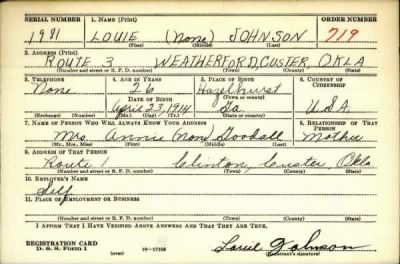 SERIAL NUMBER 1. NAME (Print) ORDER NUMBER
1981 LOUIE (None) JOHNSON 719
(First) (Middle) (Last)
2. ADDRESS (Print)
ROUTE 3 WEATHERFORD, CUSTER, OKLA
(Number and street or R. F. D. number) (Town) (County) (State)
3. TELEPHONE 4. AGE IN YEARS 5. PLACE OF BIRTH 6. COUNTRY OF CITIZENSHIP
None 26 Hazlhurst
DATE OF BIRTH (Town or county)
April 23, 1914 Ga U.S.A.
(Exchange) (Number) (Mo.) (Day) (Yr.) (State or country)
7. NAME OF PERSON WHO WILL ALWAYS KNOW YOUR ADDRESS 8. RELATIONSHIP OF THAT PERSON
Mrs. Annie (Non) Goodall Mother
(Mr., Mrs., Miss) (First) (Middle) (Last)
9. ADDRESS OF THAT PERSON
Route 1 Clinton, Custer, Okla
(Number and street or R. F. D. number) (Town) (County) (State)
10. EMPLOYER'S NAME
Self
11. PLACE OF EMPLOYMENT OR BUSINESS
(Number and street or R. F. D. number) (Town) (County) (State)
I AFFIRM THAT I HAVE VERIFIED ABOVE ANSWERS AND THAT THEY ARE TRUE.
REGISTRATION CARD
D. S. S. Form 1 (over) Louie Johnson
(Registrant's signature)